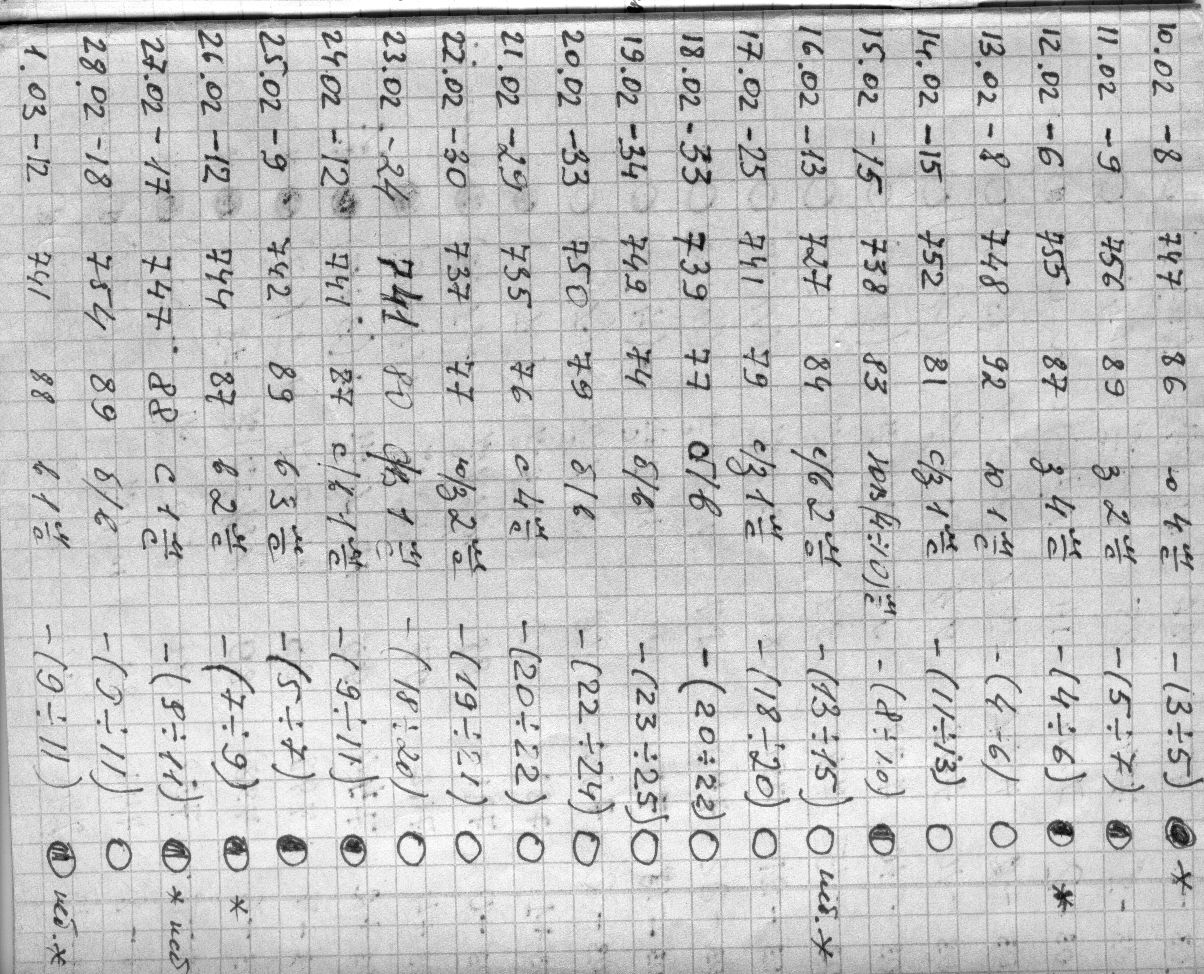 10.02 -8 747 86 ю 4 м/с -(3÷5) *
11.02 -9 756 89 з 2 м/с -(5÷7)
12.02 -6 755 87 з 4 м/с -(4÷6) *
13.02 -8 748 92 ю 1 м/с -(4÷6)
14.02 -15 752 81 с/з 1 м/с -(11÷13)
15.02 -15 738 83 (4÷10) м/с -(8÷10)
16.02 -13 727 84 2 м/с -(13÷15) неб. *
17.02 -25 741 79 с/з 1 м/с -(18÷20)
18.02 -33 739 77 б/в -(20÷22)
19.02 -34 749 74 б/в -(23÷25)
20.02 -33 750 79 б/в -(22÷24)
21.02 -29 755 76 с 4 м/с -(20÷22)
22.02 -30 737 77 ю/з 2 м/с -(19÷21)
23.02 -24 741 80 1 м/с -(18÷20)
24.02 -12 741 87 с/в 1 м/с -(9÷11)
25.02 -9 742 89 в 3 м/с -(5÷7)
26.02 -12 744 87 в 2 м/с -(7÷9) *
27.02 -17 747 88 с 1 м/с -(9÷11) * неб
28.02 -18 754 89 б/в -(9÷11)
1.03 -12 741 88 в 1 м/с -(9÷11) неб. *